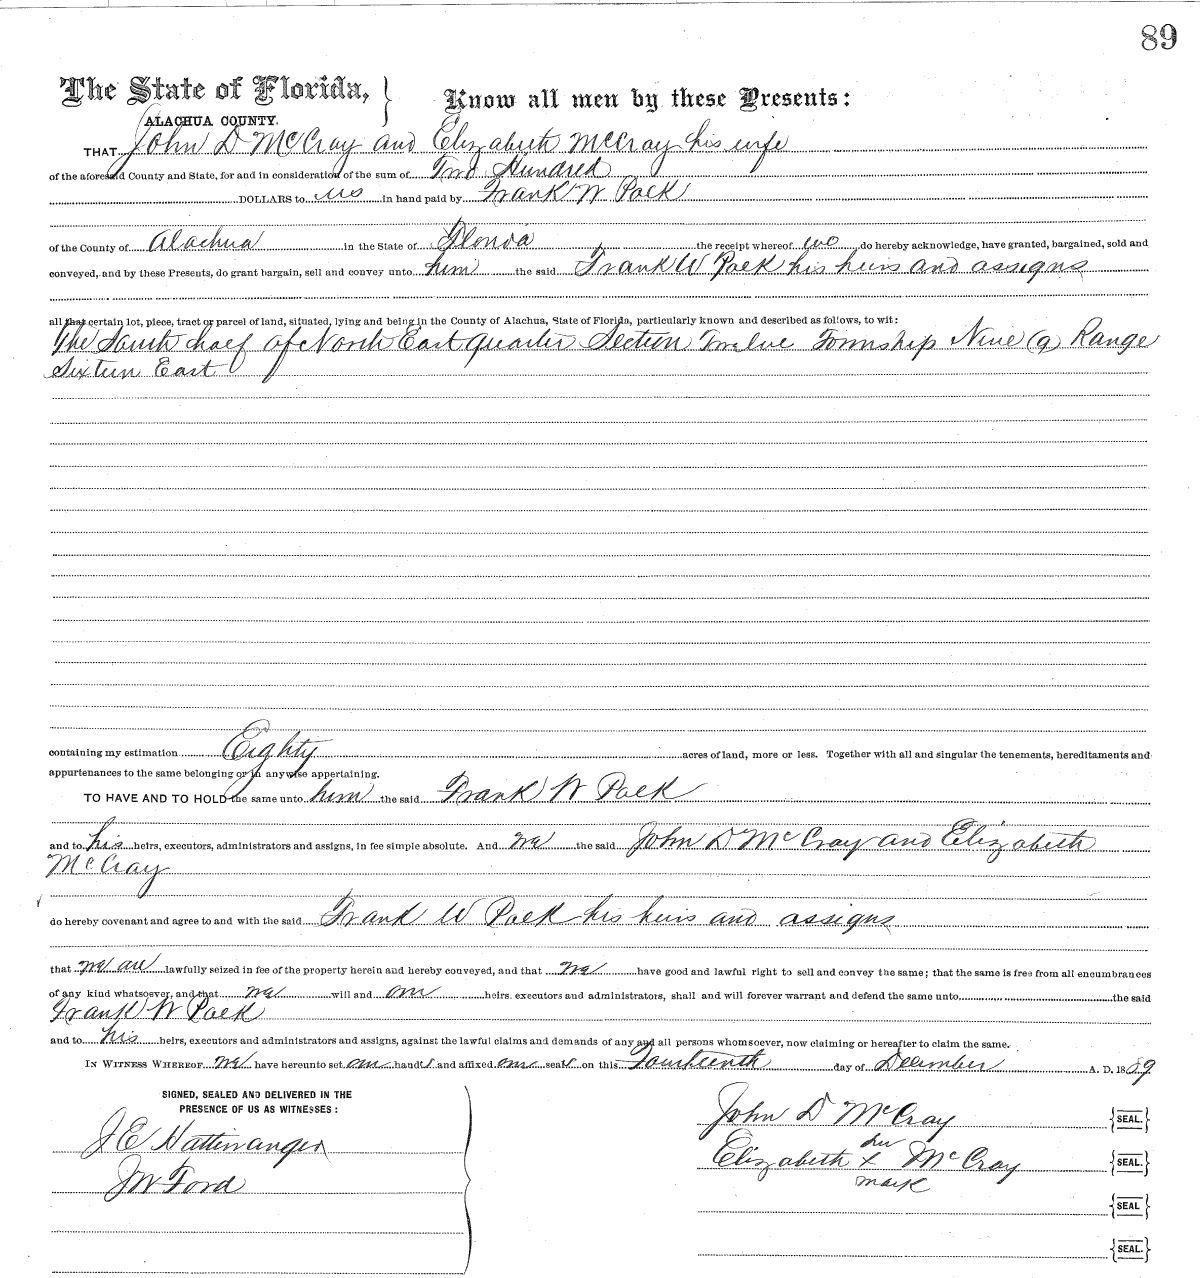 89
The State of Florida,
ALACHUA COUNTY.
Know all men by these Presents:
THAT John D McCray and Elizabeth McCray his wife
of the aforesaid County and State, for and in consideration of the sum of Two Hundred
DOLLARS to us in hand paid by Frank W Polk
of the County of Alachua in the State of Florida the receipt whereof we do hereby acknowledge, have granted, bargained, sold and
conveyed, and by these Presents, do grant bargain, sell and convey unto him the said Frank W Polk his heirs and assigns
all that certain lot, piece, tract or parcel of land, situated, lying and being in the County of Alachua, State of Florida, particularly known and described as follows, to wit:
The South half of North East quarter Section Twelve Township Nine (9) Range
Sixteen East
containing my estimation Eighty acres of land, more or less. Together with all and singular the tenements, hereditaments and
appurtenances to the same belonging or in anywise appertaining.
TO HAVE AND TO HOLD the same unto him the said Frank W Polk
and to his heirs, executors, administrators and assigns, in fee simple absolute. And we the said John D McCray and Elizabeth
McCray
do hereby covenant and agree to and with the said Frank W Polk his heirs and assigns
that we are lawfully seized in fee of the property herein and hereby conveyed, and that we have good and lawful right to sell and convey the same; that the same is free from all encumbrances
of any kind whatsoever, and that we will and our heirs. executors and administrators, shall and will forever warrant and defend the same unto the said
Frank W Polk
and to his heirs, executors and administrators and assigns, against the lawful claims and demands of any and all persons whomsoever, now claiming or hereafter to claim the same.
IN WITNESS WHEREOF we have hereunto set our hands and affixed our seals on this Fourteenth day of December A. D. 1889
SIGNED, SEALED AND DELIVERED IN THE
PRESENCE OF US AS WITNESSES:
J E
J W Ford
John D McCray SEAL.
her
Elizabeth x McCray SEAL.
mark
SEAL
SEAL.